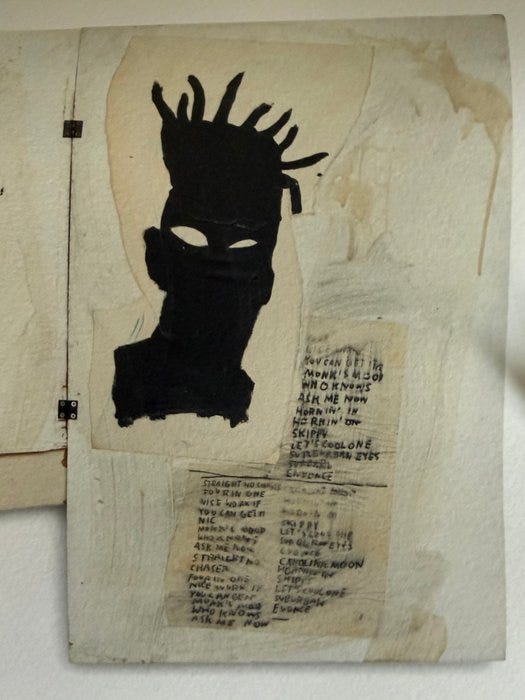 YOU CAN GET IT
MONK'S MOOD
WHO KNOWS
ASK ME NOW
HORNIN' IN
HORNIN' ON
SKIPPY
LET'S COOL ONE
SUBURBAN EYES
EVONCE
STRAIGHT NO CHASER
FOUR IN ONE
NICE WORK IF
YOU CAN GET IT
NIC
MONK'S MOOD
WHO KNOWS
ASK ME NOW
STRAIGHT NO
CHASER
FOUR IN ONE
NICE WORK IF
YOU CAN GET
MONK'S MOOD
WHO KNOWS
ASK ME NOW
SKIPPY
LET'S COOL ONE
SUBURBAN EYES
EVONCE
CAROLINA MOON
HORNIN IN
SKIP
LET'S COOL ONE
SUBURBAN
EVONCE